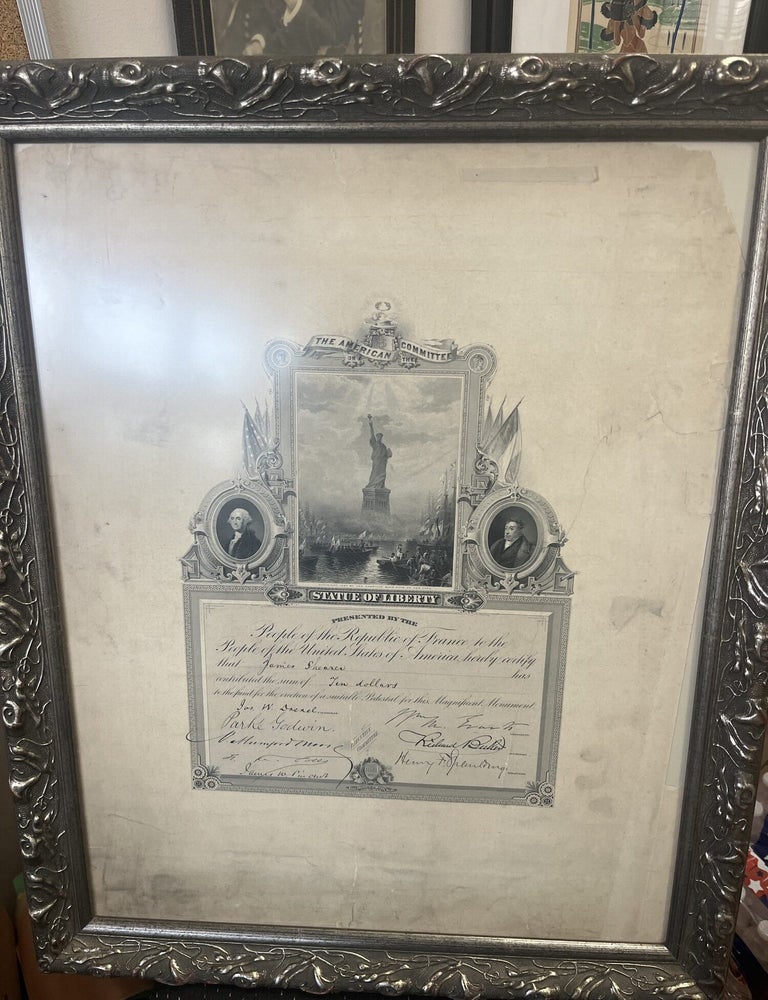 THE AMERICAN COMMITTEE
ON THE
STATUE OF LIBERTY
PRESENTED BY THE
People of the Republic of France to the
People of the United States of America, hereby certify
that James Shearer has
contributed the sum of Ten dollars
to the fund for the erection of a suitable Pedestal for this Magnificent Monument
Jos W. Drexel
Wm M. Evarts
Parke Godwin.
Richard Butler
Henry F. Spaulding
James W. Pinchot